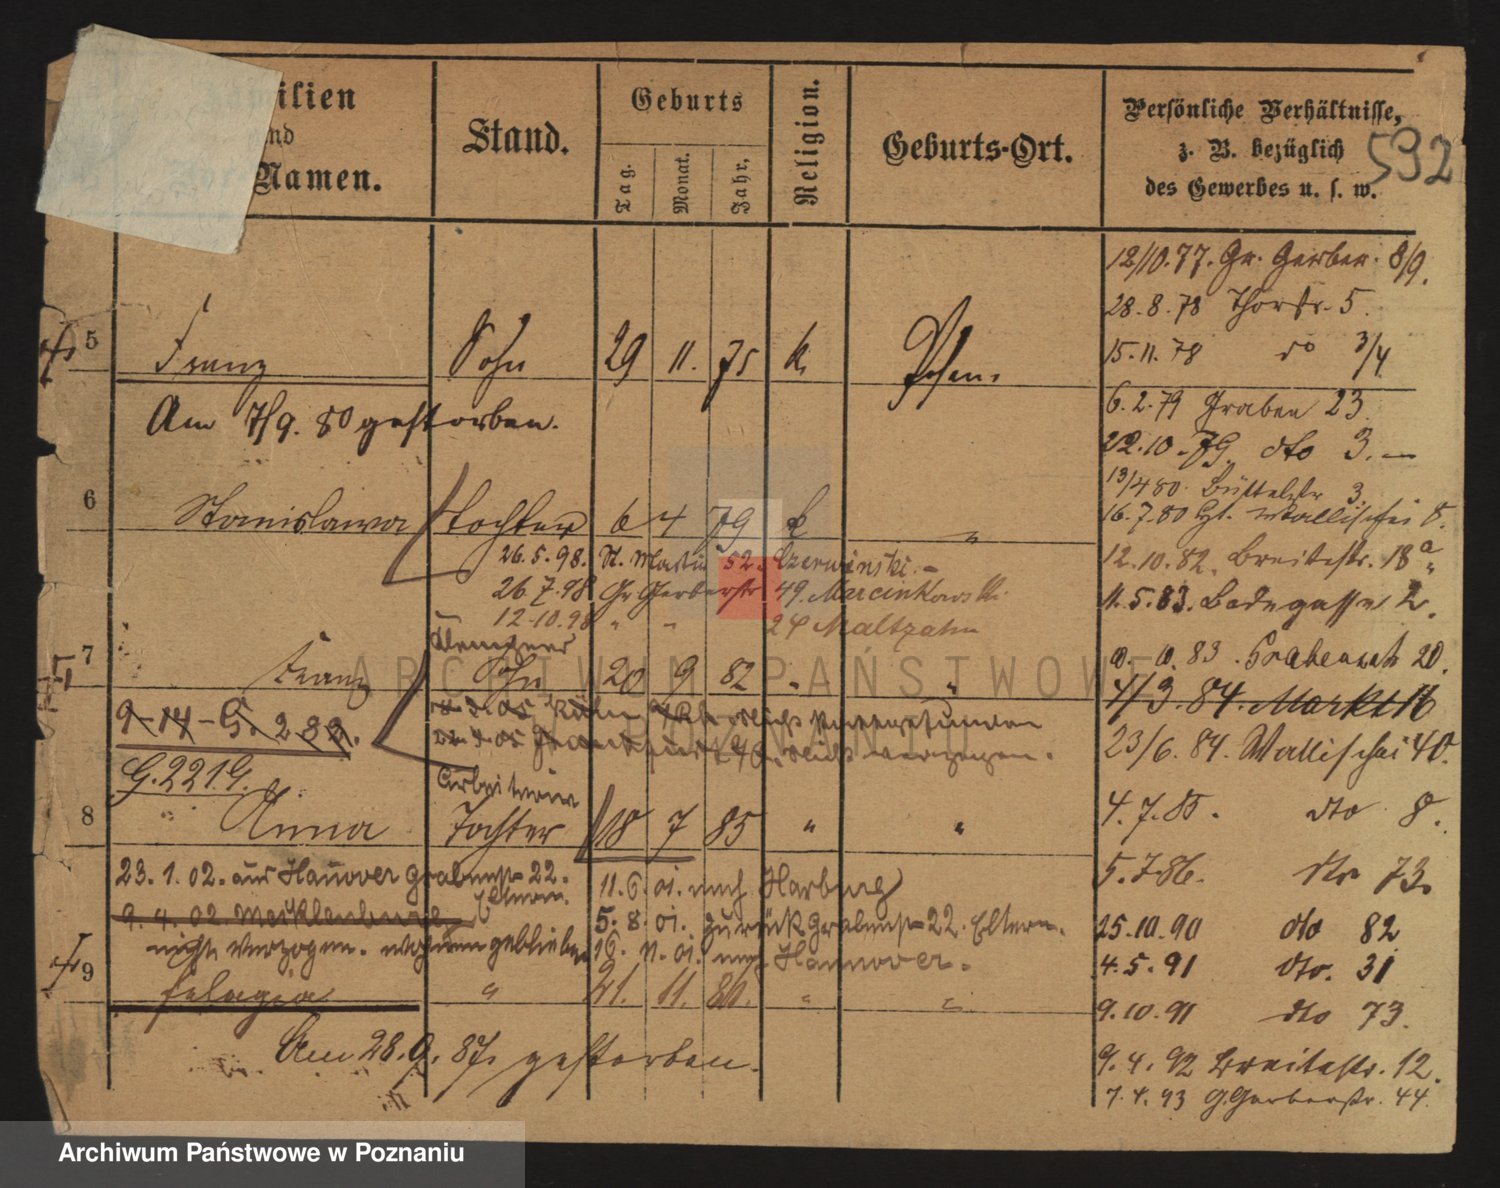 Familien
und
Vor-Namen.
Stand.
Geburts
Tag.
Monat.
Jahr,
Religion.
Geburts-Ort.
Persönliche Verhältnisse,
z. B. bezüglich
des Gewerbes u. s. w.
592
12/10.77. Gr. Gerber. 8/9.
28.8.78 Thorstr. 5.
15.11.78 do 3/4
5 Franz Sohn 29 11. 75 k. Posen.
Am 7/9. 80 gestorben.
6.2.79 Graben 23.
22.10.79. dto 3. —
13/4 80. Büttelstr 3.
16.7.80 Wallischei 8.
6 Stanislawa Tochter 6 4 79 k "
26.5.98. St. Martin 52. Czerwinski. -
26.7.98 Gr Gerberstr 49. Marcinkowski.
12.10.98 " " 24 Maltzahn
12.10.82. Breitestr. 18a
11.5.83. Badegasse 2.
83. Grabenstr 20.
1/3.84. Markt 16
23/6. 84. Wallischei 40.
Klempner
7 Franz Sohn 20 9 82 " "
9-14-G. 289.
verzogen.
G. 2219.
Arbeiterin
8 Anna Tochter 18 7 85 " "
4.7.85. dto 8.
5.7.86. dto 73.
23.1.02. aus Hanover Grabenstr 22. Eltern.
9.4.02. Mecklenburg
nicht verzogen. wohnen geblieben
11.6.01. nach Harburg
5.8.01. zurück Grabenstr 22. Eltern.
16. 11. 01. nach Hannover.
25.10.90 dto 82
4.5.91 dto. 31
9.10.91 dto 73.
9 Pelagia " 21. 11. 86. " "
Am 28.9. 87. gestorben.
9.4.92 Breitestr. 12.
7.4.93 G. Gerberstr. 44.
ARCHIWUM PAŃSTWOWE
W POZNANIU
Archiwum Państwowe w Poznaniu